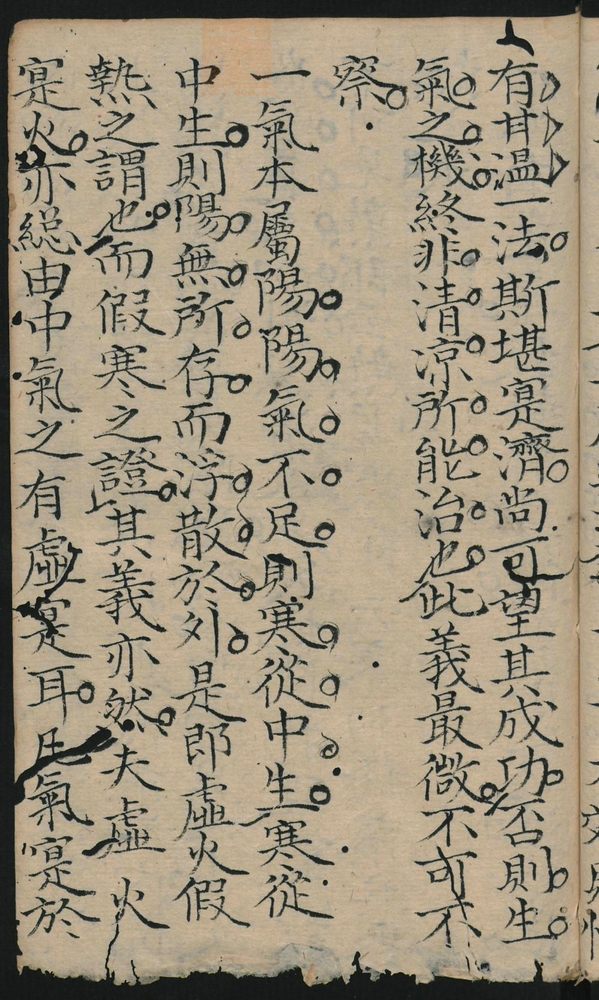 有甘溫一法斯堪寔濟尚可望其成功否則生
氣之機終非清凉所能治也此義最微不可不
察
一氣本屬陽陽氣不足則寒從中生寒從
中生則陽無所存而浮散於外是即虛火假
熱之謂也而假寒之證其義亦然夫虛火
寔火亦総由中氣之有虛寔耳凡氣寔於